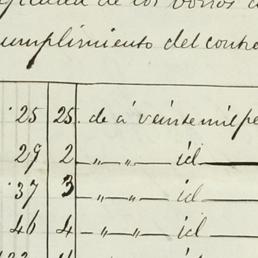 de los bonos
cumplimiento del contra
25 25 de á veinte mil pe
29 2 " " id
37 3 " " id
46 4 " " id